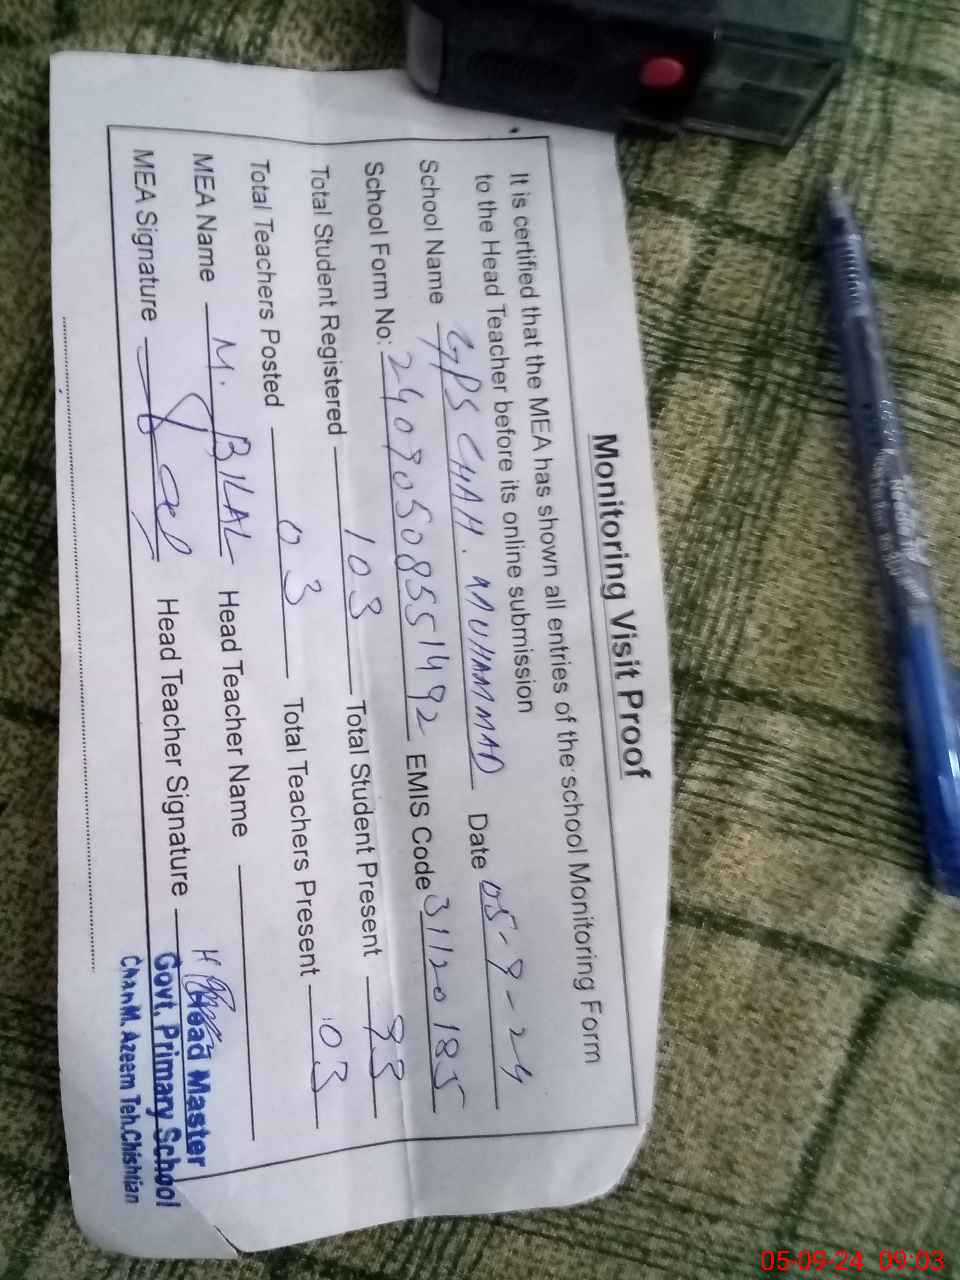 Monitoring Visit Proof
It is certified that the MEA has shown all entries of the school Monitoring Form
to the Head Teacher before its online submission
School Name GPS CHAH. MUHAMMAD Date 05-9-24
School Form No: 24090508551492 EMIS Code 31120185
Total Student Registered 103 Total Student Present 93
Total Teachers Posted 03 Total Teachers Present 03
MEA Name M. BILAL Head Teacher Name
MEA Signature Head Teacher Signature
Head Master
Govt. Primary School
Chan M. Azeem Teh.Chishtian
05-09-24 09:03